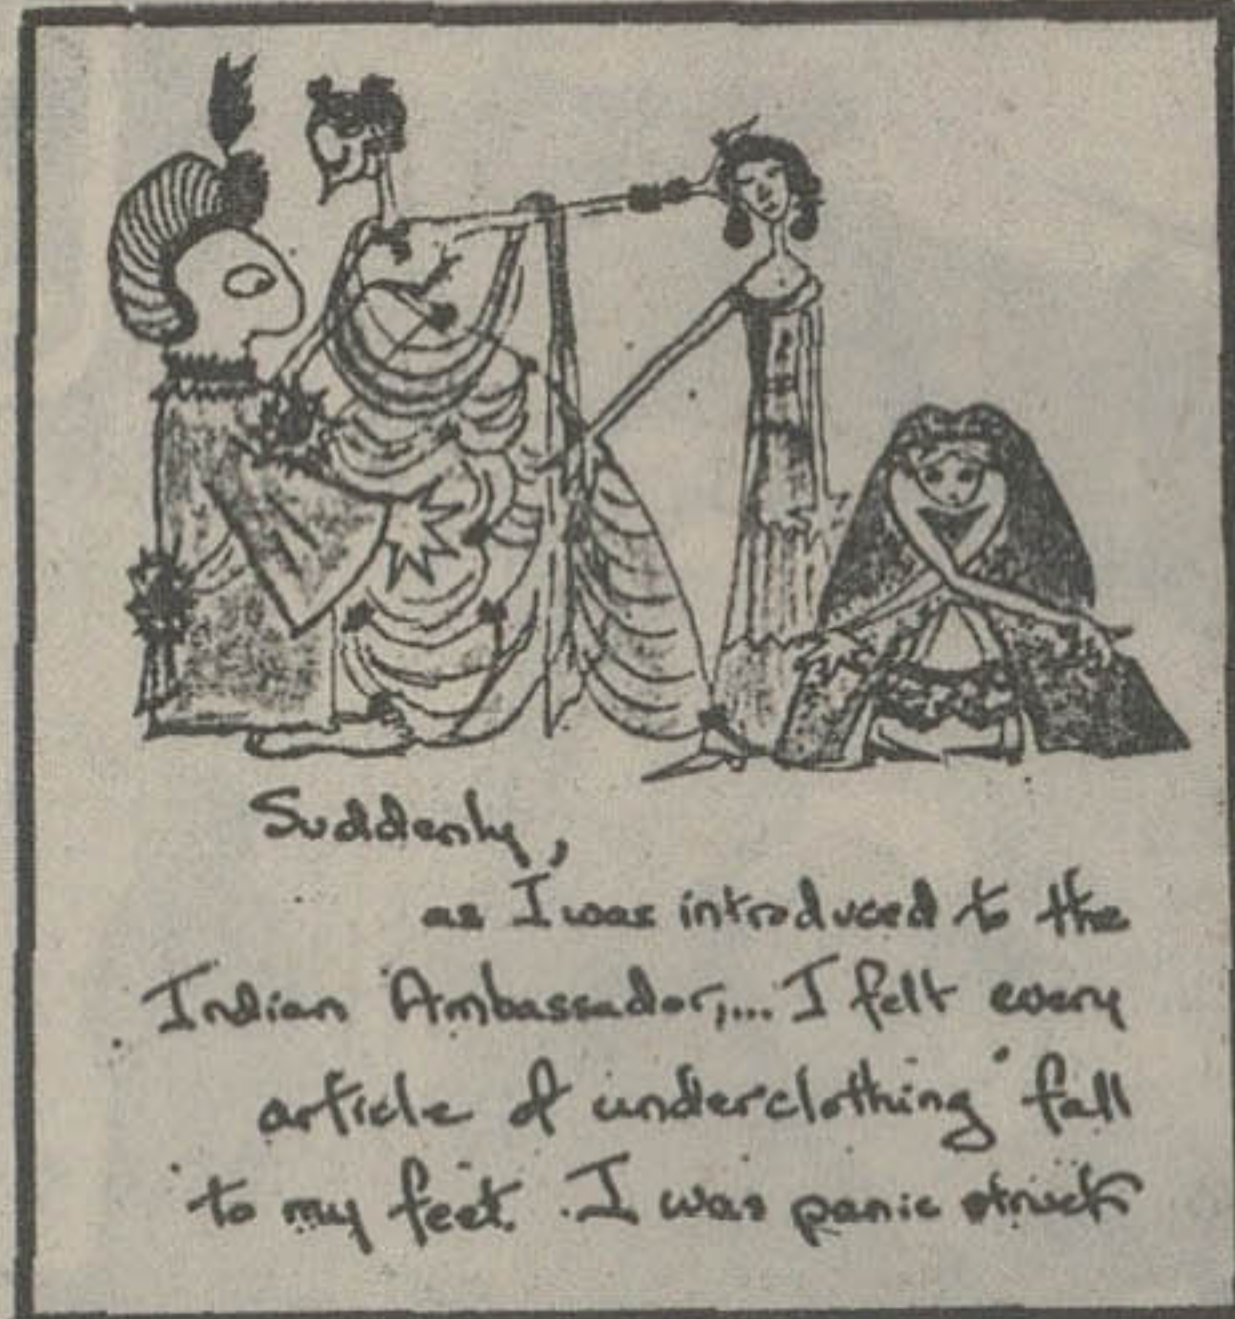 Suddenly,
as I was introduced to the
Indian Ambassador,... I felt every
article of underclothing fall
to my feet. I was panic struck